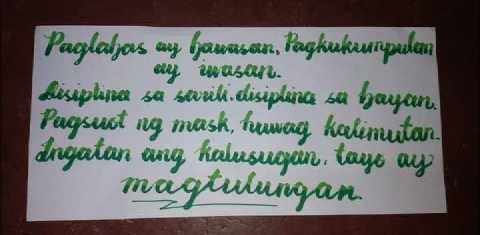 Paglabas ay bawasan, Pagkukumpulan
ay iwasan.
Disiplina sa sarili. disiplina sa bayan.
Pagsuot ng mask, huwag kalimutan.
Ingatan ang kalusugan, tayo ay
magtulungan.